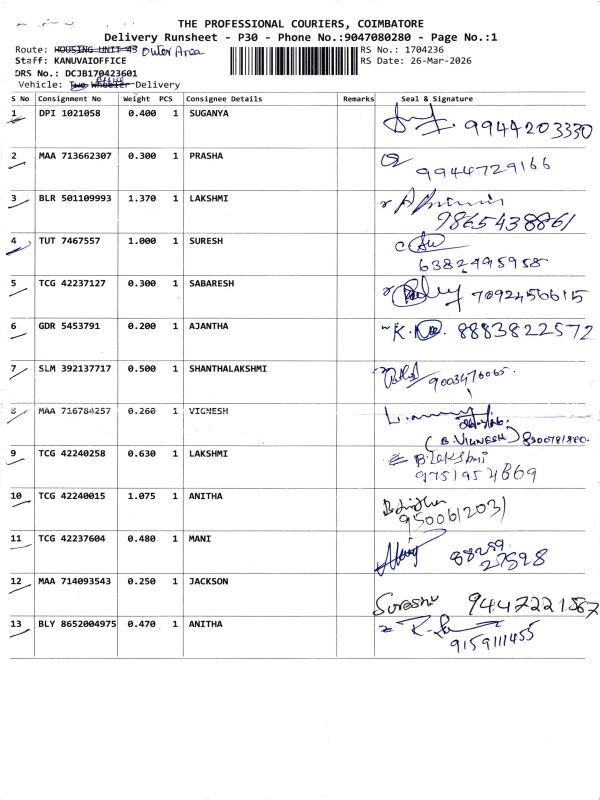 THE PROFESSIONAL COURIERS, COIMBATORE
Delivery Runsheet - P30 - Phone No.:9047080280 - Page No.:1
Route: HOUSING UNIT 43 Outer Area
RS No.: 1704236
Staff: KANUVAIOFFICE
RS Date: 26-Mar-2026
DRS No.: DCJB170423601
Vehicle: Two Wheeler Office Delivery
S No Consignment No Weight PCS Consignee Details Remarks Seal & Signature
1 DPI 1021058 0.400 1 SUGANYA 9944203330
2 MAA 713662307 0.300 1 PRASHA 9944729166
3 BLR 501109993 1.370 1 LAKSHMI
9865438861
4 TUT 7467557 1.000 1 SURESH
6382495958
5 TCG 42237127 0.300 1 SABARESH 7092456615
6 GDR 5453791 0.200 1 AJANTHA 8883822572
7 SLM 392137717 0.500 1 SHANTHALAKSHMI 9003476065
8 MAA 716784257 0.260 1 VIGNESH
(B. VIGNESH)
9 TCG 42240258 0.630 1 LAKSHMI B. Lakshmi
9751954869
10 TCG 42240015 1.075 1 ANITHA
9500612031
11 TCG 42237604 0.480 1 MANI 88259
27598
12 MAA 714093543 0.250 1 JACKSON
Suresh
13 BLY 8652004975 0.470 1 ANITHA
9159111455